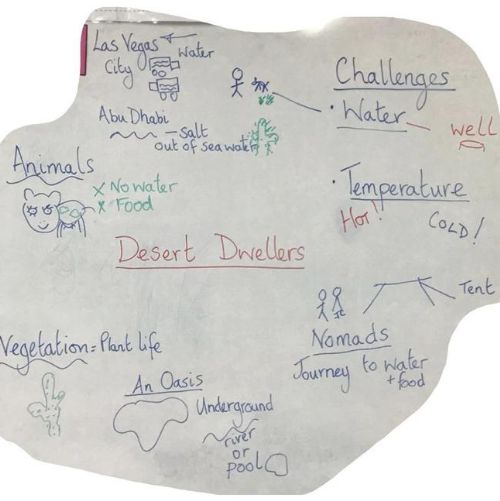 Las Vegas
Water
City
Abu Dhabi
- salt
out of seawater
Challenges
· Water
well
· Temperature
Hot!
COLD!
Animals
x No water
x Food
Desert Dwellers
Tent
Nomads
Journey to water
+ food
Vegetation = Plant life
An Oasis
Underground
river
or
pool